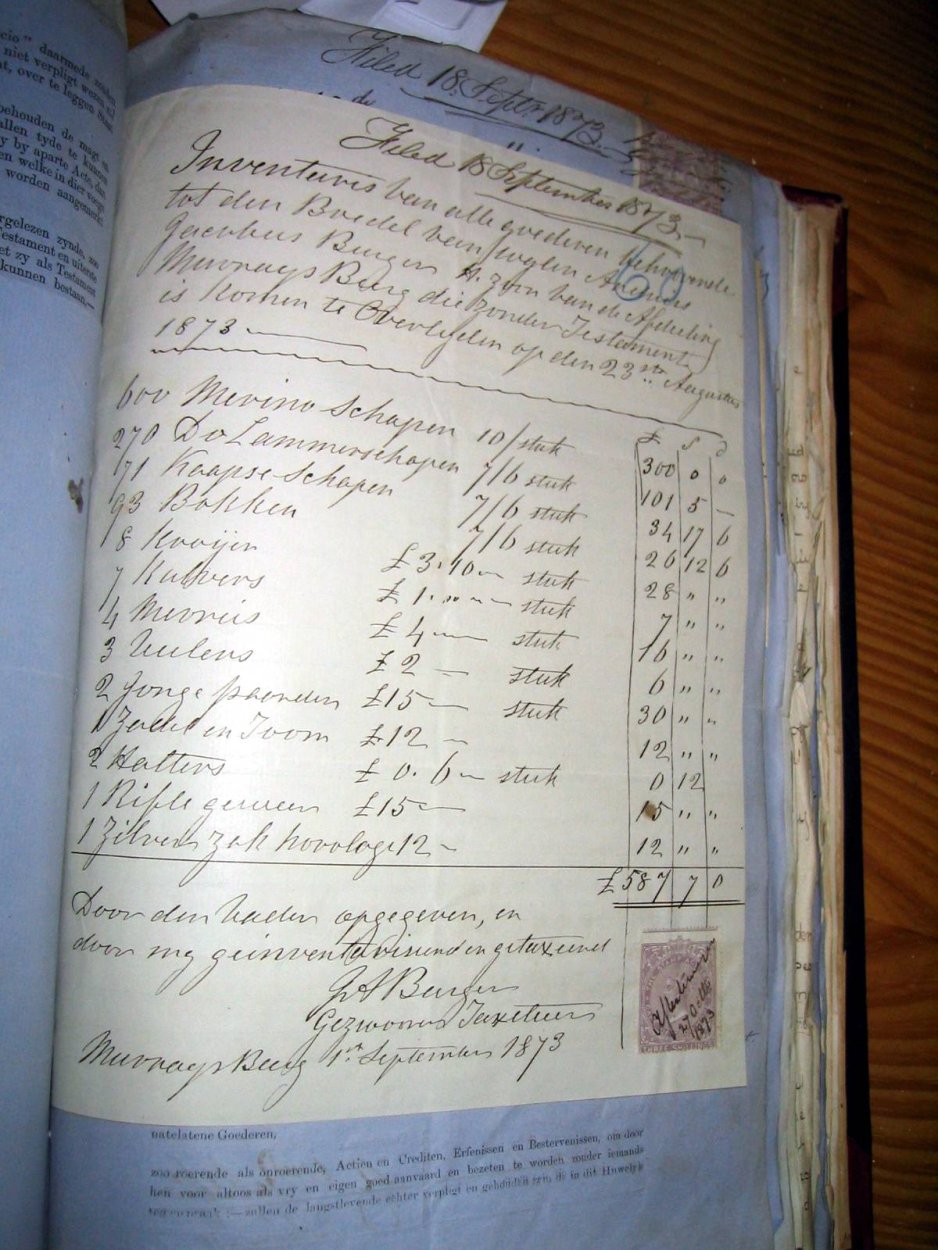 cio" daarmede zouden
niet verpligt wezen
at, over te leggen
behouden de magt
allen tyde te kunnen
by by aparte Acte,
en welke in dier voege
worden aangemerkt
gelezen zynde,
estament en uiterste
et zy als Testament
kunnen bestaan,—
Filed 18 Septr. 1873
Filed 18 September 1873.—
Inventaris van alle goederen behoorende
tot den Boedel van wylen Andries
Jacobus Burger A. zoon van de Afdeeling
Murrays Burg die zonder Testament
is komen te Overlyden op den 23ste Augustus
1873
£ s d
600 Merino Schapen 10/ stuk 300 0 0
270 Do Lammerschapen 7/6 stuk 101 5 —
71 Kaapse Schapen 7/6 stuk 34 17 6
93 Bokken 7/6 stuk 26 12 6
8 Kooijen £3.10— stuk 28 " "
7 Kalvers £1.— stuk 7 " "
4 Merries £4— stuk 16 " "
3 Veulens £2— stuk 6 " "
2 Jonge paarden £15— stuk 30 " "
1 Zadel en Toom £12— 12 " "
2 Halters £0.6— stuk 0 12
1 Rifle geweer £15— 15 " "
1 Zilver zak horologe 12— 12 " "
£587 7 0
Door den vader opgegeven, en
door my geinventariseerd en getaxeerd
Burger
Gezworen Taxateur
Murrays Burg 1st September 1873
1873
THREE SHILLINGS
natelatene Goederen,
zoo roerende als onroerende, Actien en Crediten, Erfenissen en Bestervenissen, om door
hen voor altoos als vry en eigen goed aanvaard en bezeten te worden zonder iemands
tegenspraak :—zullen de langstlevende echter verpligt en gehouden zyn, de in dit Huwelyk